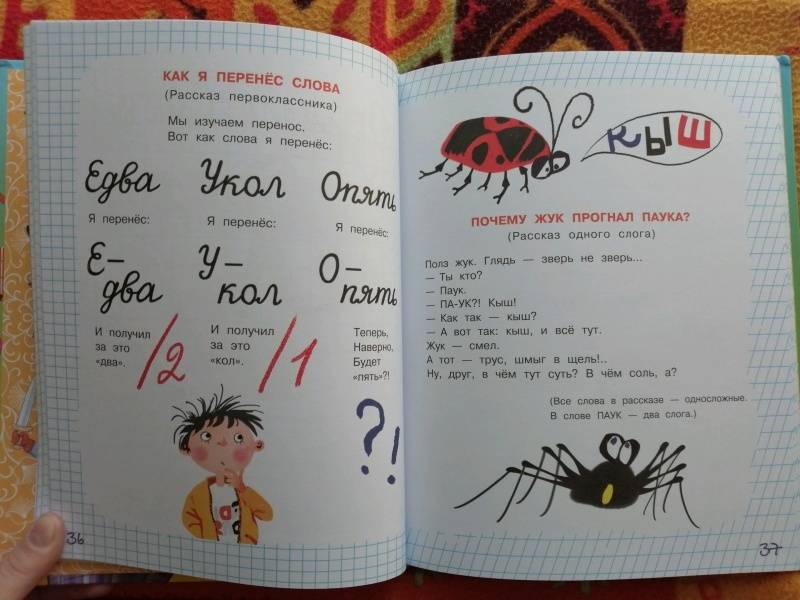 КАК Я ПЕРЕНЁС СЛОВА
(Рассказ первоклассника)
Мы изучаем перенос.
Вот как слова я перенёс:
Едва Укол Опять
Я перенёс: Я перенёс: Я перенёс:
Е– У– О–
два кол пять
И получил
за это
«два».
/2
И получил
за это
«кол».
/1
Теперь,
Наверно,
Будет
«пять»?!
?!
36
КЫШ
ПОЧЕМУ ЖУК ПРОГНАЛ ПАУКА?
(Рассказ одного слога)
Полз жук. Глядь — зверь не зверь...
— Ты кто?
— Паук.
— ПА-УК?! Кыш!
— Как так — кыш?
— А вот так: кыш, и всё тут.
Жук — смел.
А тот — трус, шмыг в щель!..
Ну, друг, в чём тут суть? В чём соль, а?
(Все слова в рассказе — односложные.
В слове ПАУК — два слога.)
37